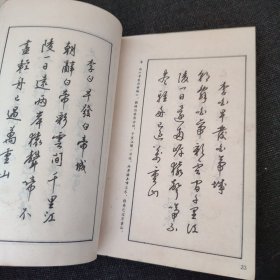 李白早發白帝城
朝辭白帝彩雲間千里江
陵一日還兩岸猿聲啼不
盡輕舟已過萬重山
李白早發白帝城
朝辭白帝彩雲間千里江
陵一日還兩岸猿聲啼不
盡輕舟已過萬重山